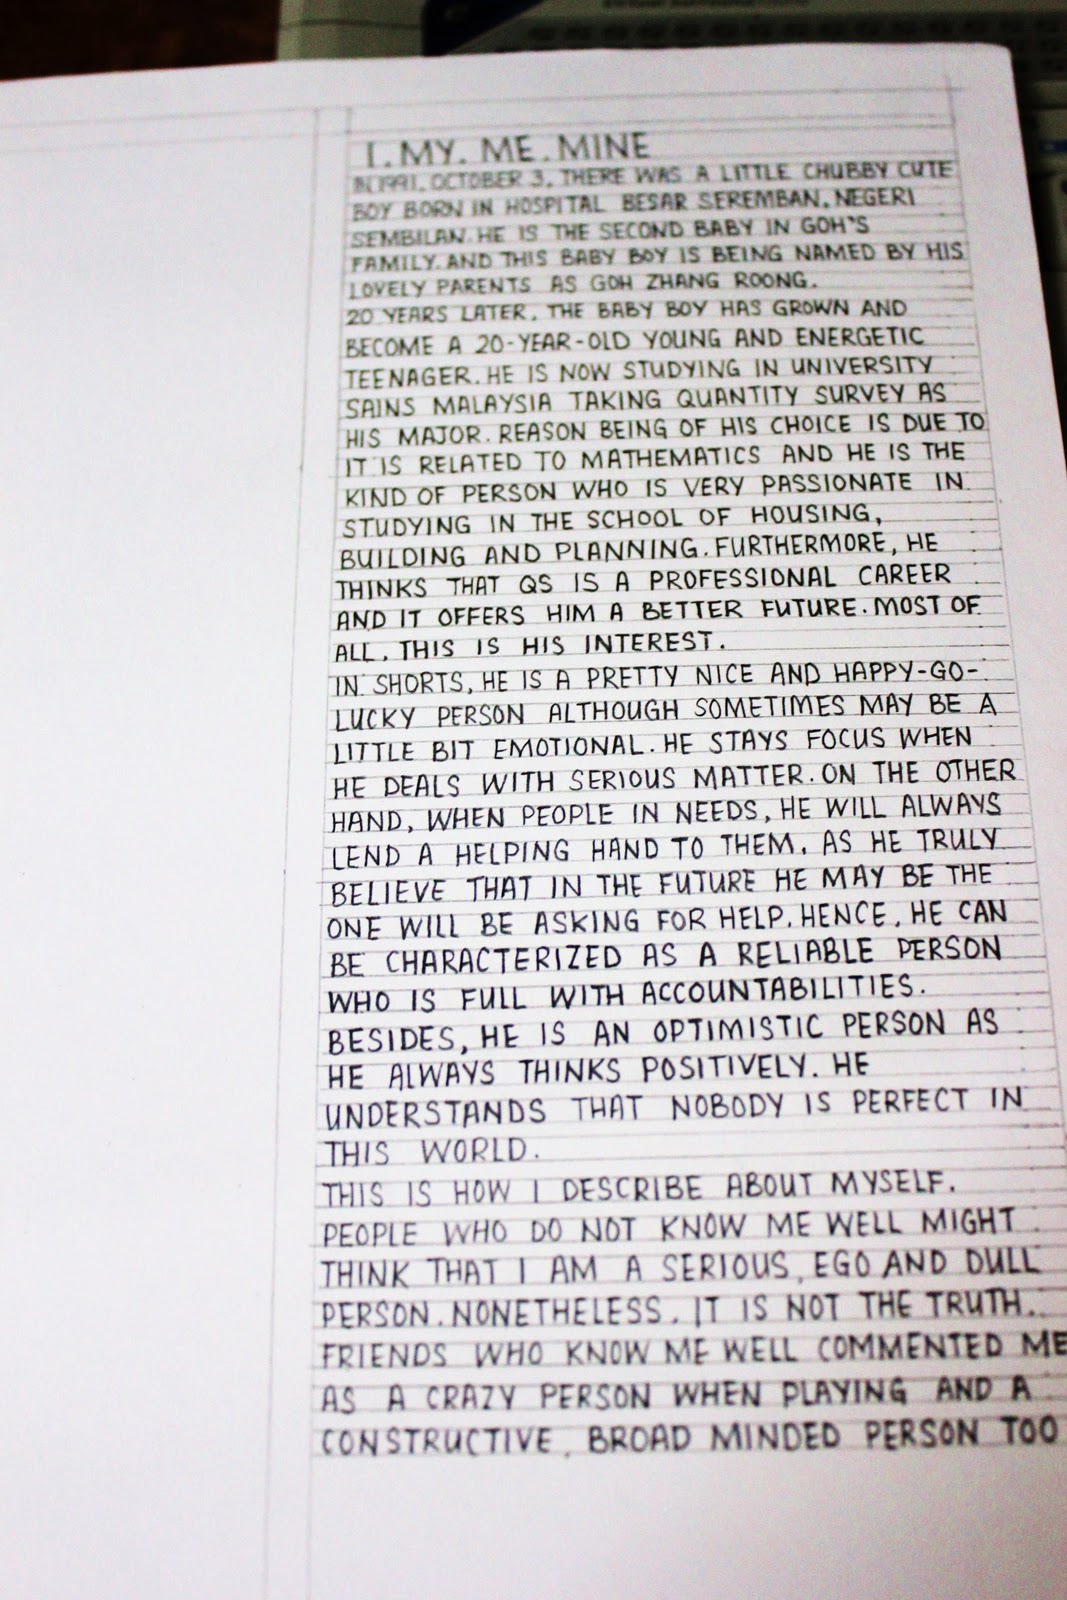 I. MY. ME. MINE
IN 1991, OCTOBER 3, THERE WAS A LITTLE CHUBBY CUTE
BOY BORN IN HOSPITAL BESAR SEREMBAN, NEGERI
SEMBILAN. HE IS THE SECOND BABY IN GOH'S
FAMILY. AND THIS BABY BOY IS BEING NAMED BY HIS
LOVELY PARENTS AS GOH ZHANG ROONG.
20 YEARS LATER, THE BABY BOY HAS GROWN AND
BECOME A 20-YEAR-OLD YOUNG AND ENERGETIC
TEENAGER. HE IS NOW STUDYING IN UNIVERSITY
SAINS MALAYSIA TAKING QUANTITY SURVEY AS
HIS MAJOR. REASON BEING OF HIS CHOICE IS DUE TO
IT IS RELATED TO MATHEMATICS AND HE IS THE
KIND OF PERSON WHO IS VERY PASSIONATE IN
STUDYING IN THE SCHOOL OF HOUSING,
BUILDING AND PLANNING. FURTHERMORE, HE
THINKS THAT QS IS A PROFESSIONAL CAREER
AND IT OFFERS HIM A BETTER FUTURE. MOST OF
ALL, THIS IS HIS INTEREST.
IN SHORTS, HE IS A PRETTY NICE AND HAPPY-GO-
LUCKY PERSON ALTHOUGH SOMETIMES MAY BE A
LITTLE BIT EMOTIONAL. HE STAYS FOCUS WHEN
HE DEALS WITH SERIOUS MATTER. ON THE OTHER
HAND, WHEN PEOPLE IN NEEDS, HE WILL ALWAYS
LEND A HELPING HAND TO THEM, AS HE TRULY
BELIEVE THAT IN THE FUTURE HE MAY BE THE
ONE WILL BE ASKING FOR HELP. HENCE, HE CAN
BE CHARACTERIZED AS A RELIABLE PERSON
WHO IS FULL WITH ACCOUNTABILITIES.
BESIDES, HE IS AN OPTIMISTIC PERSON AS
HE ALWAYS THINKS POSITIVELY. HE
UNDERSTANDS THAT NOBODY IS PERFECT IN
THIS WORLD.
THIS IS HOW I DESCRIBE ABOUT MYSELF.
PEOPLE WHO DO NOT KNOW ME WELL MIGHT
THINK THAT I AM A SERIOUS, EGO AND DULL
PERSON. NONETHELESS, IT IS NOT THE TRUTH.
FRIENDS WHO KNOW ME WELL COMMENTED ME
AS A CRAZY PERSON WHEN PLAYING AND A
CONSTRUCTIVE, BROAD MINDED PERSON TOO